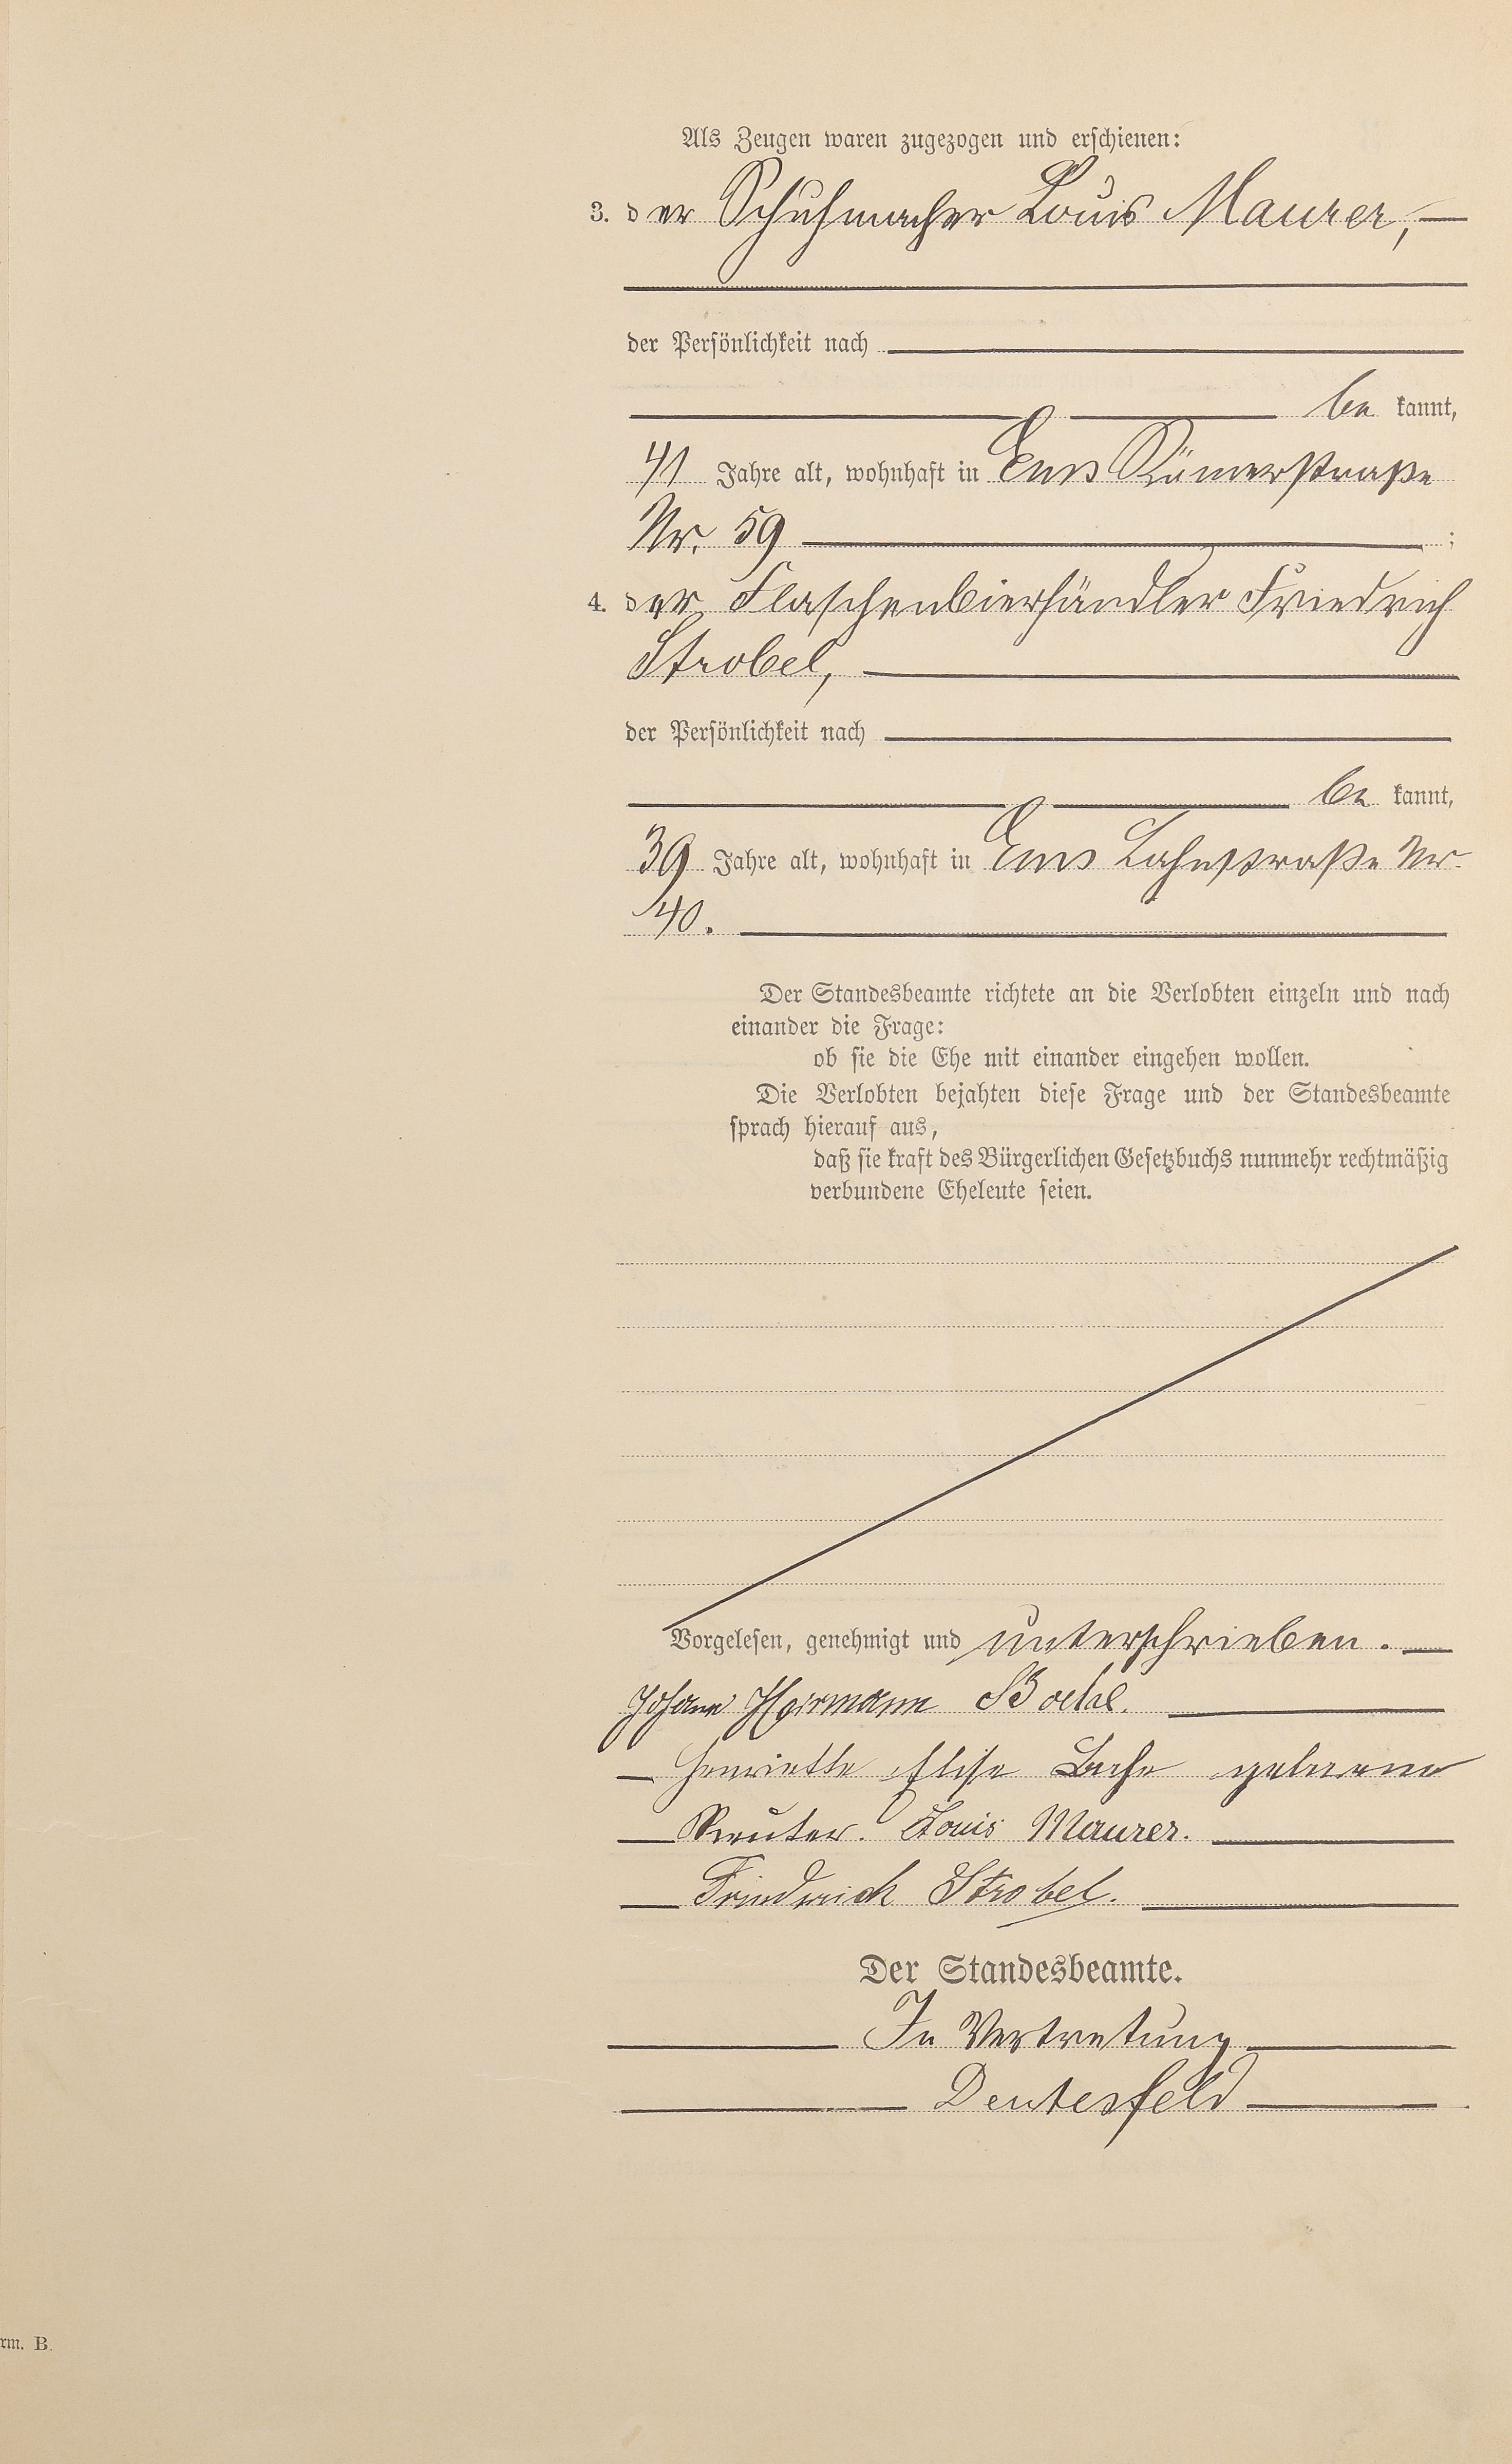 Als Zeugen waren zugezogen und erschienen:
3. der Schuhmacher Louis Maurer,
der Persönlichkeit nach
be kannt,
41 Jahre alt, wohnhaft in Ems Römerstraße
Nr. 59 ;
4. der Flaschenbierhändler Friedrich
Strobel,
der Persönlichkeit nach
be kannt,
39 Jahre alt, wohnhaft in Ems Lahnstraße Nr.
40.
Der Standesbeamte richtete an die Verlobten einzeln und nach
einander die Frage:
ob sie die Ehe mit einander eingehen wollen.
Die Verlobten bejahten diese Frage und der Standesbeamte
sprach hierauf aus,
daß sie kraft des Bürgerlichen Gesetzbuchs nunmehr rechtmäßig
verbundene Eheleute seien.
Vorgelesen, genehmigt und unterschrieben.
Johann Herrmann
Henriette Elise geborene
Reuter. Louis Maurer.
Friedrich Strobel.
Der Standesbeamte.
In Vertretung
Deutesfeld
rm. B.